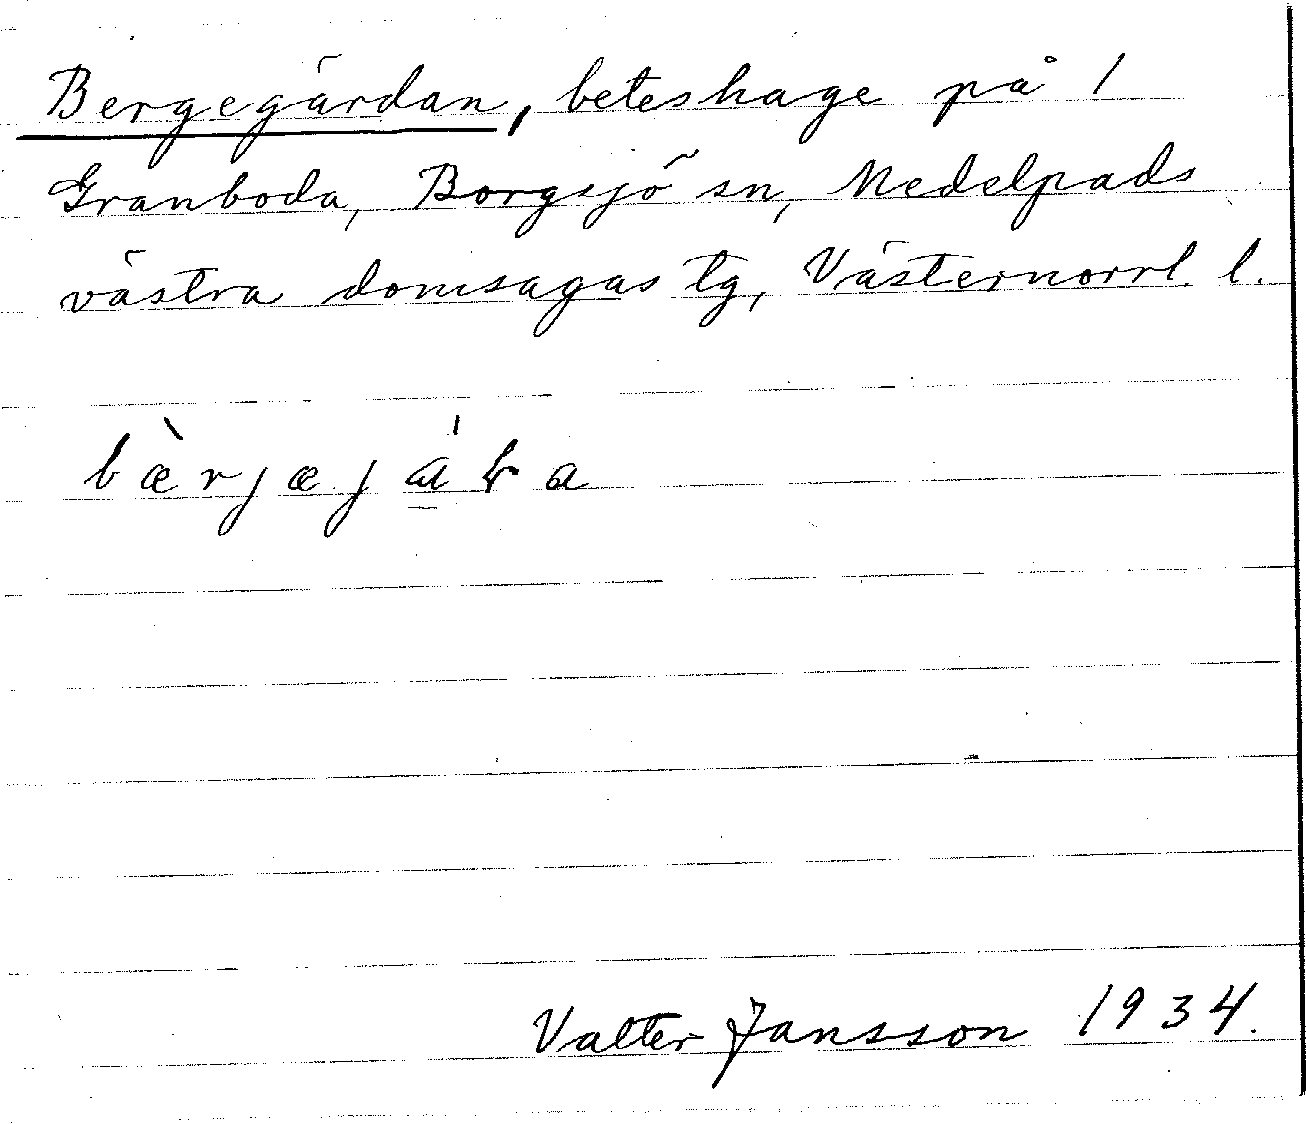 Bergegärdan, beteshage på 1
Granboda, Borgsjö sn, Medelpads
västra domsagas tg, Västernorrl. l.
Valter Jansson 1934.